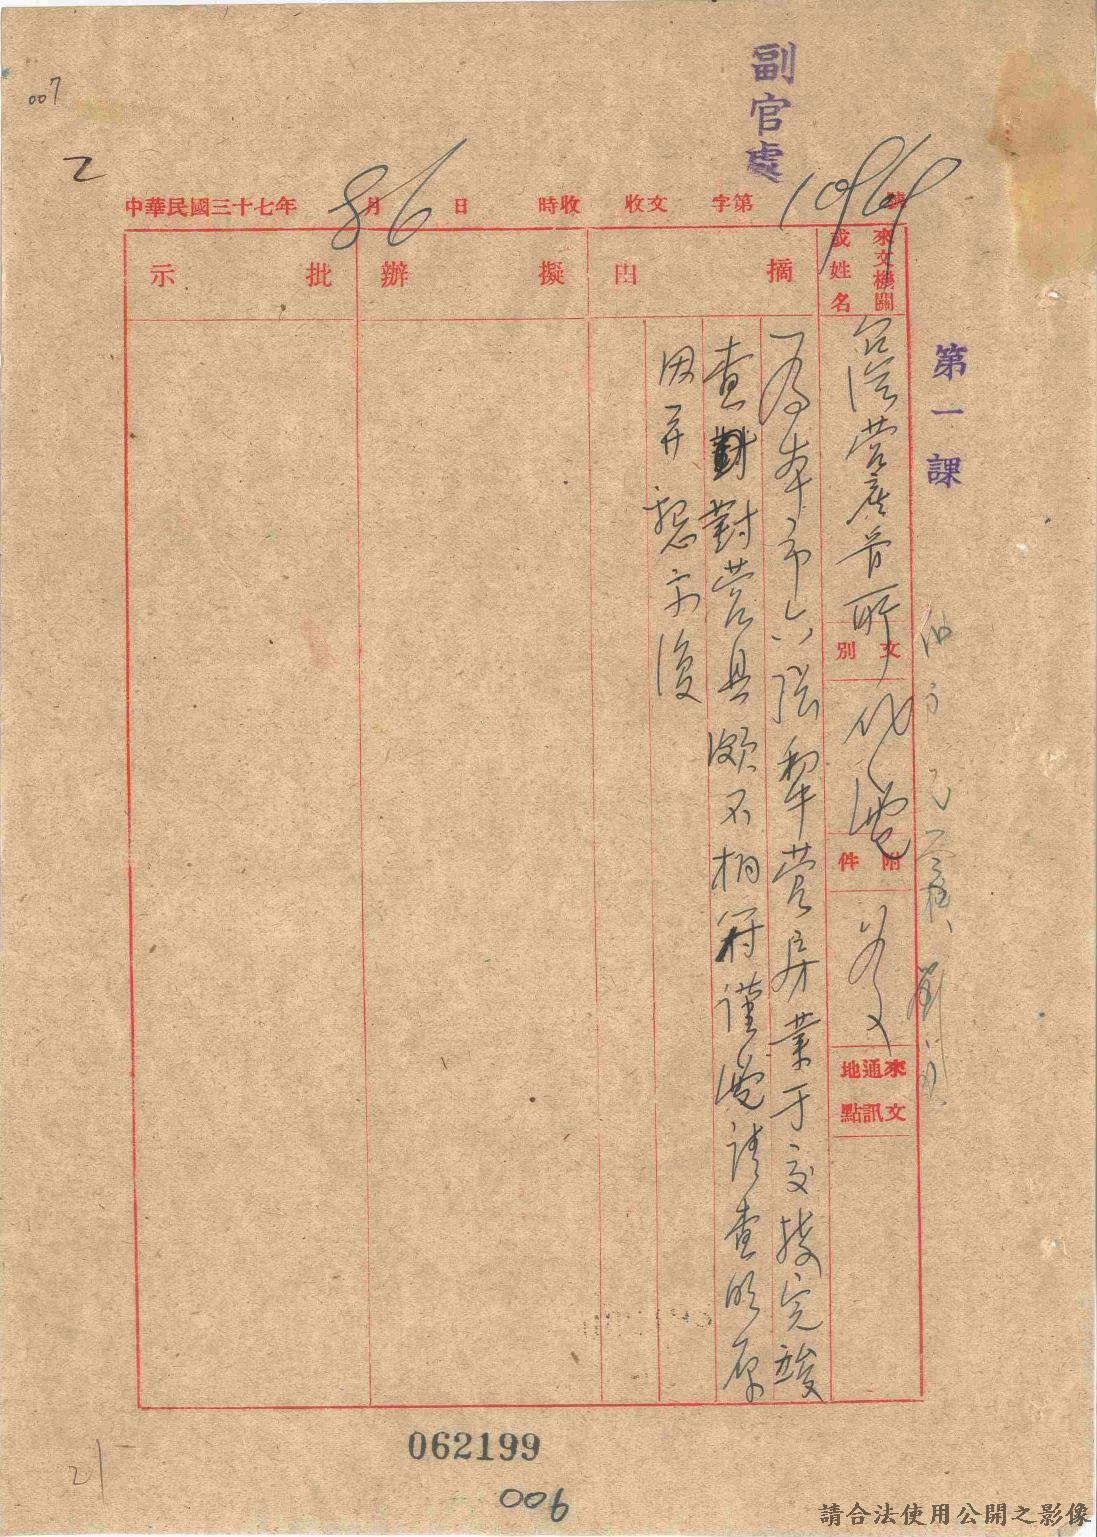 007
副官處
乙
中華民國三十七年 8月6日 時收 收文 字第10964號
來文機關或姓名
台澎營產管所
文別
代電
附件
來文通訊地點
摘由
為本市六張犁營房業于交接完竣
查對營具頗不相符謹電請查明原
因并懇示復
擬辦
批示
第一課
062199
006
21
請合法使用公開之影像